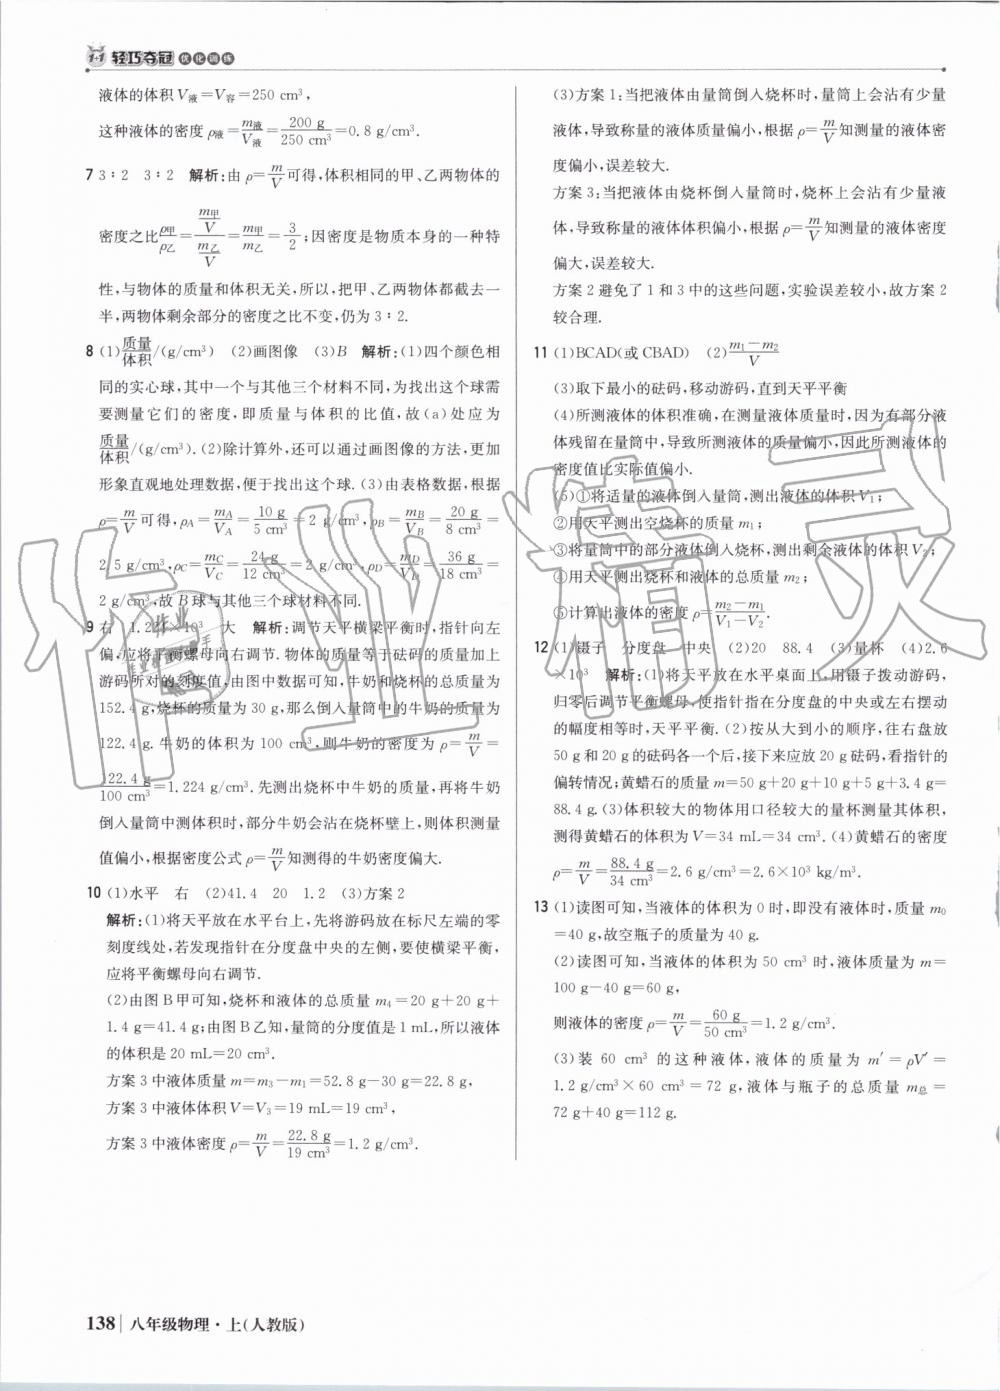 1+1 轻巧夺冠 优化训练
液体的体积V液=V容=250 cm³,
这种液体的密度ρ液=m液/V液=200 g/250 cm³=0.8 g/cm³.
7 3∶2 3∶2 解析:由ρ=m/V可得,体积相同的甲、乙两物体的
密度之比ρ甲/ρ乙=(m甲/V)/(m乙/V)=m甲/m乙=3/2;因密度是物质本身的一种特
性,与物体的质量和体积无关,所以,把甲、乙两物体都截去一
半,两物体剩余部分的密度之比不变,仍为3∶2.
8 (1)质量/体积/(g/cm³) (2)画图像 (3)B 解析:(1)四个颜色相
同的实心球,其中一个与其他三个材料不同,为找出这个球需
要测量它们的密度,即质量与体积的比值,故(a)处应为
质量/体积/(g/cm³).(2)除计算外,还可以通过画图像的方法,更加
形象直观地处理数据,便于找出这个球.(3)由表格数据,根据
ρ=m/V可得,ρA=mA/VA=10 g/5 cm³=2 g/cm³,ρB=mB/VB=20 g/8 cm³=
2.5 g/cm³,ρC=mC/VC=24 g/12 cm³=2 g/cm³,ρD=mD/VD=36 g/18 cm³=
2 g/cm³,故B球与其他三个球材料不同.
9 右 1.224×10³ 大 解析:调节天平横梁平衡时,指针向左
偏,应将平衡螺母向右调节.物体的质量等于砝码的质量加上
游码所对的刻度值,由图中数据可知,牛奶和烧杯的总质量为
152.4 g,烧杯的质量为30 g,那么倒入量筒中的牛奶的质量为
122.4 g.牛奶的体积为100 cm³,则牛奶的密度为ρ=m/V=
122.4 g/100 cm³=1.224 g/cm³.先测出烧杯中牛奶的质量,再将牛奶
倒入量筒中测体积时,部分牛奶会沾在烧杯壁上,则体积测量
值偏小,根据密度公式ρ=m/V知测得的牛奶密度偏大.
10 (1)水平 右 (2)41.4 20 1.2 (3)方案2
解析:(1)将天平放在水平台上,先将游码放在标尺左端的零
刻度线处,若发现指针在分度盘中央的左侧,要使横梁平衡,
应将平衡螺母向右调节.
(2)由图B甲可知,烧杯和液体的总质量m₄=20 g+20 g+
1.4 g=41.4 g;由图B乙知,量筒的分度值是1 mL,所以液体
的体积是20 mL=20 cm³.
方案3中液体质量m=m₃-m₁=52.8 g-30 g=22.8 g,
方案3中液体体积V=V₃=19 mL=19 cm³,
方案3中液体密度ρ=m/V=22.8 g/19 cm³=1.2 g/cm³.
(3)方案1:当把液体由量筒倒入烧杯时,量筒上会沾有少量
液体,导致称量的液体质量偏小,根据ρ=m/V知测量的液体密
度偏小,误差较大.
方案3:当把液体由烧杯倒入量筒时,烧杯上会沾有少量液
体,导致称量的液体体积偏小,根据ρ=m/V知测量的液体密度
偏大,误差较大.
方案2避免了1和3中的这些问题,实验误差较小,故方案2
较合理.
11 (1)BCAD(或CBAD) (2)m₁-m₂/V
(3)取下最小的砝码,移动游码,直到天平平衡
(4)所测液体的体积准确,在测量液体质量时,因为有部分液
体残留在量筒中,导致所测液体的质量偏小,因此所测液体的
密度值比实际值偏小.
(5)①将适量的液体倒入量筒,测出液体的体积V₁;
②用天平测出空烧杯的质量m₁;
③将量筒中的部分液体倒入烧杯,测出剩余液体的体积V₂;
④用天平测出烧杯和液体的总质量m₂;
⑤计算出液体的密度ρ=m₂-m₁/V₁-V₂.
12 (1)镊子 分度盘 中央 (2)20 88.4 (3)量杯 (4)2.6
×10³ 解析:(1)将天平放在水平桌面上,用镊子拨动游码,
归零后调节平衡螺母,使指针指在分度盘的中央或左右摆动
的幅度相等时,天平平衡.(2)按从大到小的顺序,往右盘放
50 g和20 g的砝码各一个后,接下来应放20 g砝码,看指针的
偏转情况;黄蜡石的质量m=50 g+20 g+10 g+5 g+3.4 g=
88.4 g.(3)体积较大的物体用口径较大的量杯测量其体积,
测得黄蜡石的体积为V=34 mL=34 cm³.(4)黄蜡石的密度
ρ=m/V=88.4 g/34 cm³=2.6 g/cm³=2.6×10³ kg/m³.
13 (1)读图可知,当液体的体积为0时,即没有液体时,质量m₀
=40 g,故空瓶子的质量为40 g.
(2)读图可知,当液体的体积为50 cm³时,液体质量为m=
100 g-40 g=60 g,
则液体的密度ρ=m/V=60 g/50 cm³=1.2 g/cm³.
(3)装60 cm³的这种液体,液体的质量为m′=ρV′=
1.2 g/cm³×60 cm³=72 g,液体与瓶子的总质量m总=
72 g+40 g=112 g.
作业精灵
138 八年级物理·上(人教版)